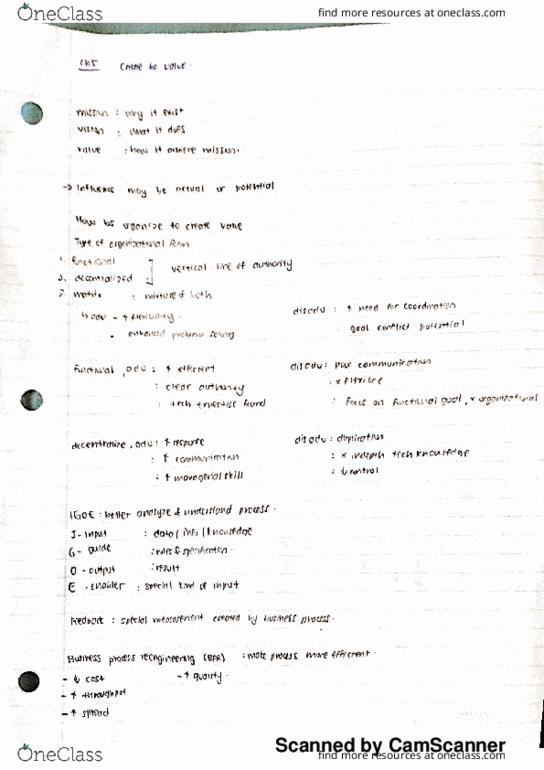 OneClass
find more resources at oneclass.com
Ch5 Create to value.
mission : why it exist
vision : what it does
value : how it achieve mission.
→ Influence may be actual or potential
How to organize to create value
Type of organizational
1. functional
2. decentralized
vertical line of authority
3. matrix : mixture of both
adv - ↑ flexibility.
• enhanced problem solving
disadv : ↑ need for coordination
: goal conflict potential
functional, adv : ↑ efficient
: clear authority
: tech expertise found
disadv : poor communication
: x flexible
: Focus on functional goal, x organizational
decentralize, adv : ↑ response
: ↑ communication
: ↑ managerial skill
disadv : duplication
: x indepth tech knowledge
: ↓ control
IGOE : better analyze & understand process.
I - input : data / info / knowledge
G - guide : rules & specification.
O - output : result
E - enabler : special kind of input
Feedback : special measurement created by business process.
Business process reengineering (BPR) : make process more efficient.
- ↓ cost
- ↑ quality.
- ↑ throughput
- ↑ speed
Scanned by CamScanner
OneClass
find more resources at oneclass.com